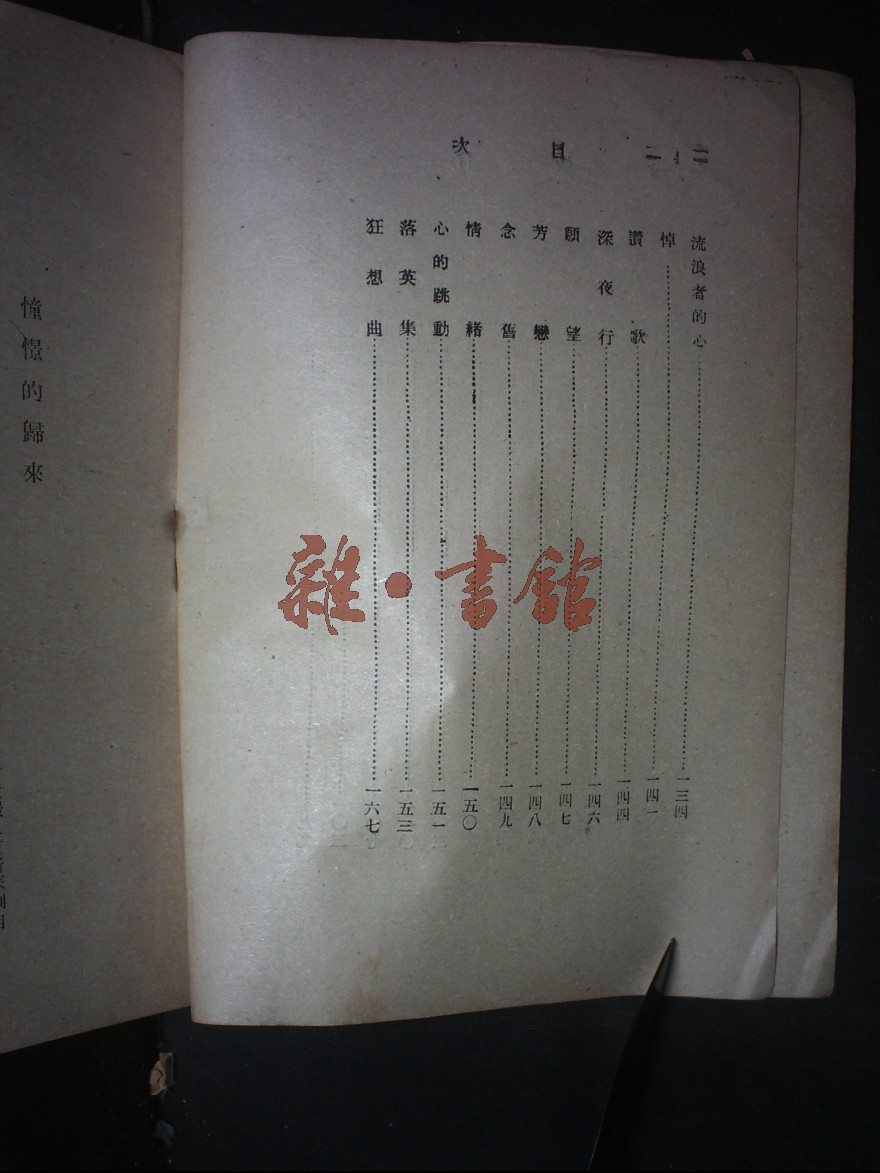 目次
流浪者的心……一三四
悼……一四一
讚歌……一四四
深夜行……一四六
願望……一四七
芳戀……一四八
念舊……一四九
情緒……一五〇
心的跳動……一五一
落英集……一五三
狂想曲……一六七
雜·書館
憧憬的歸來